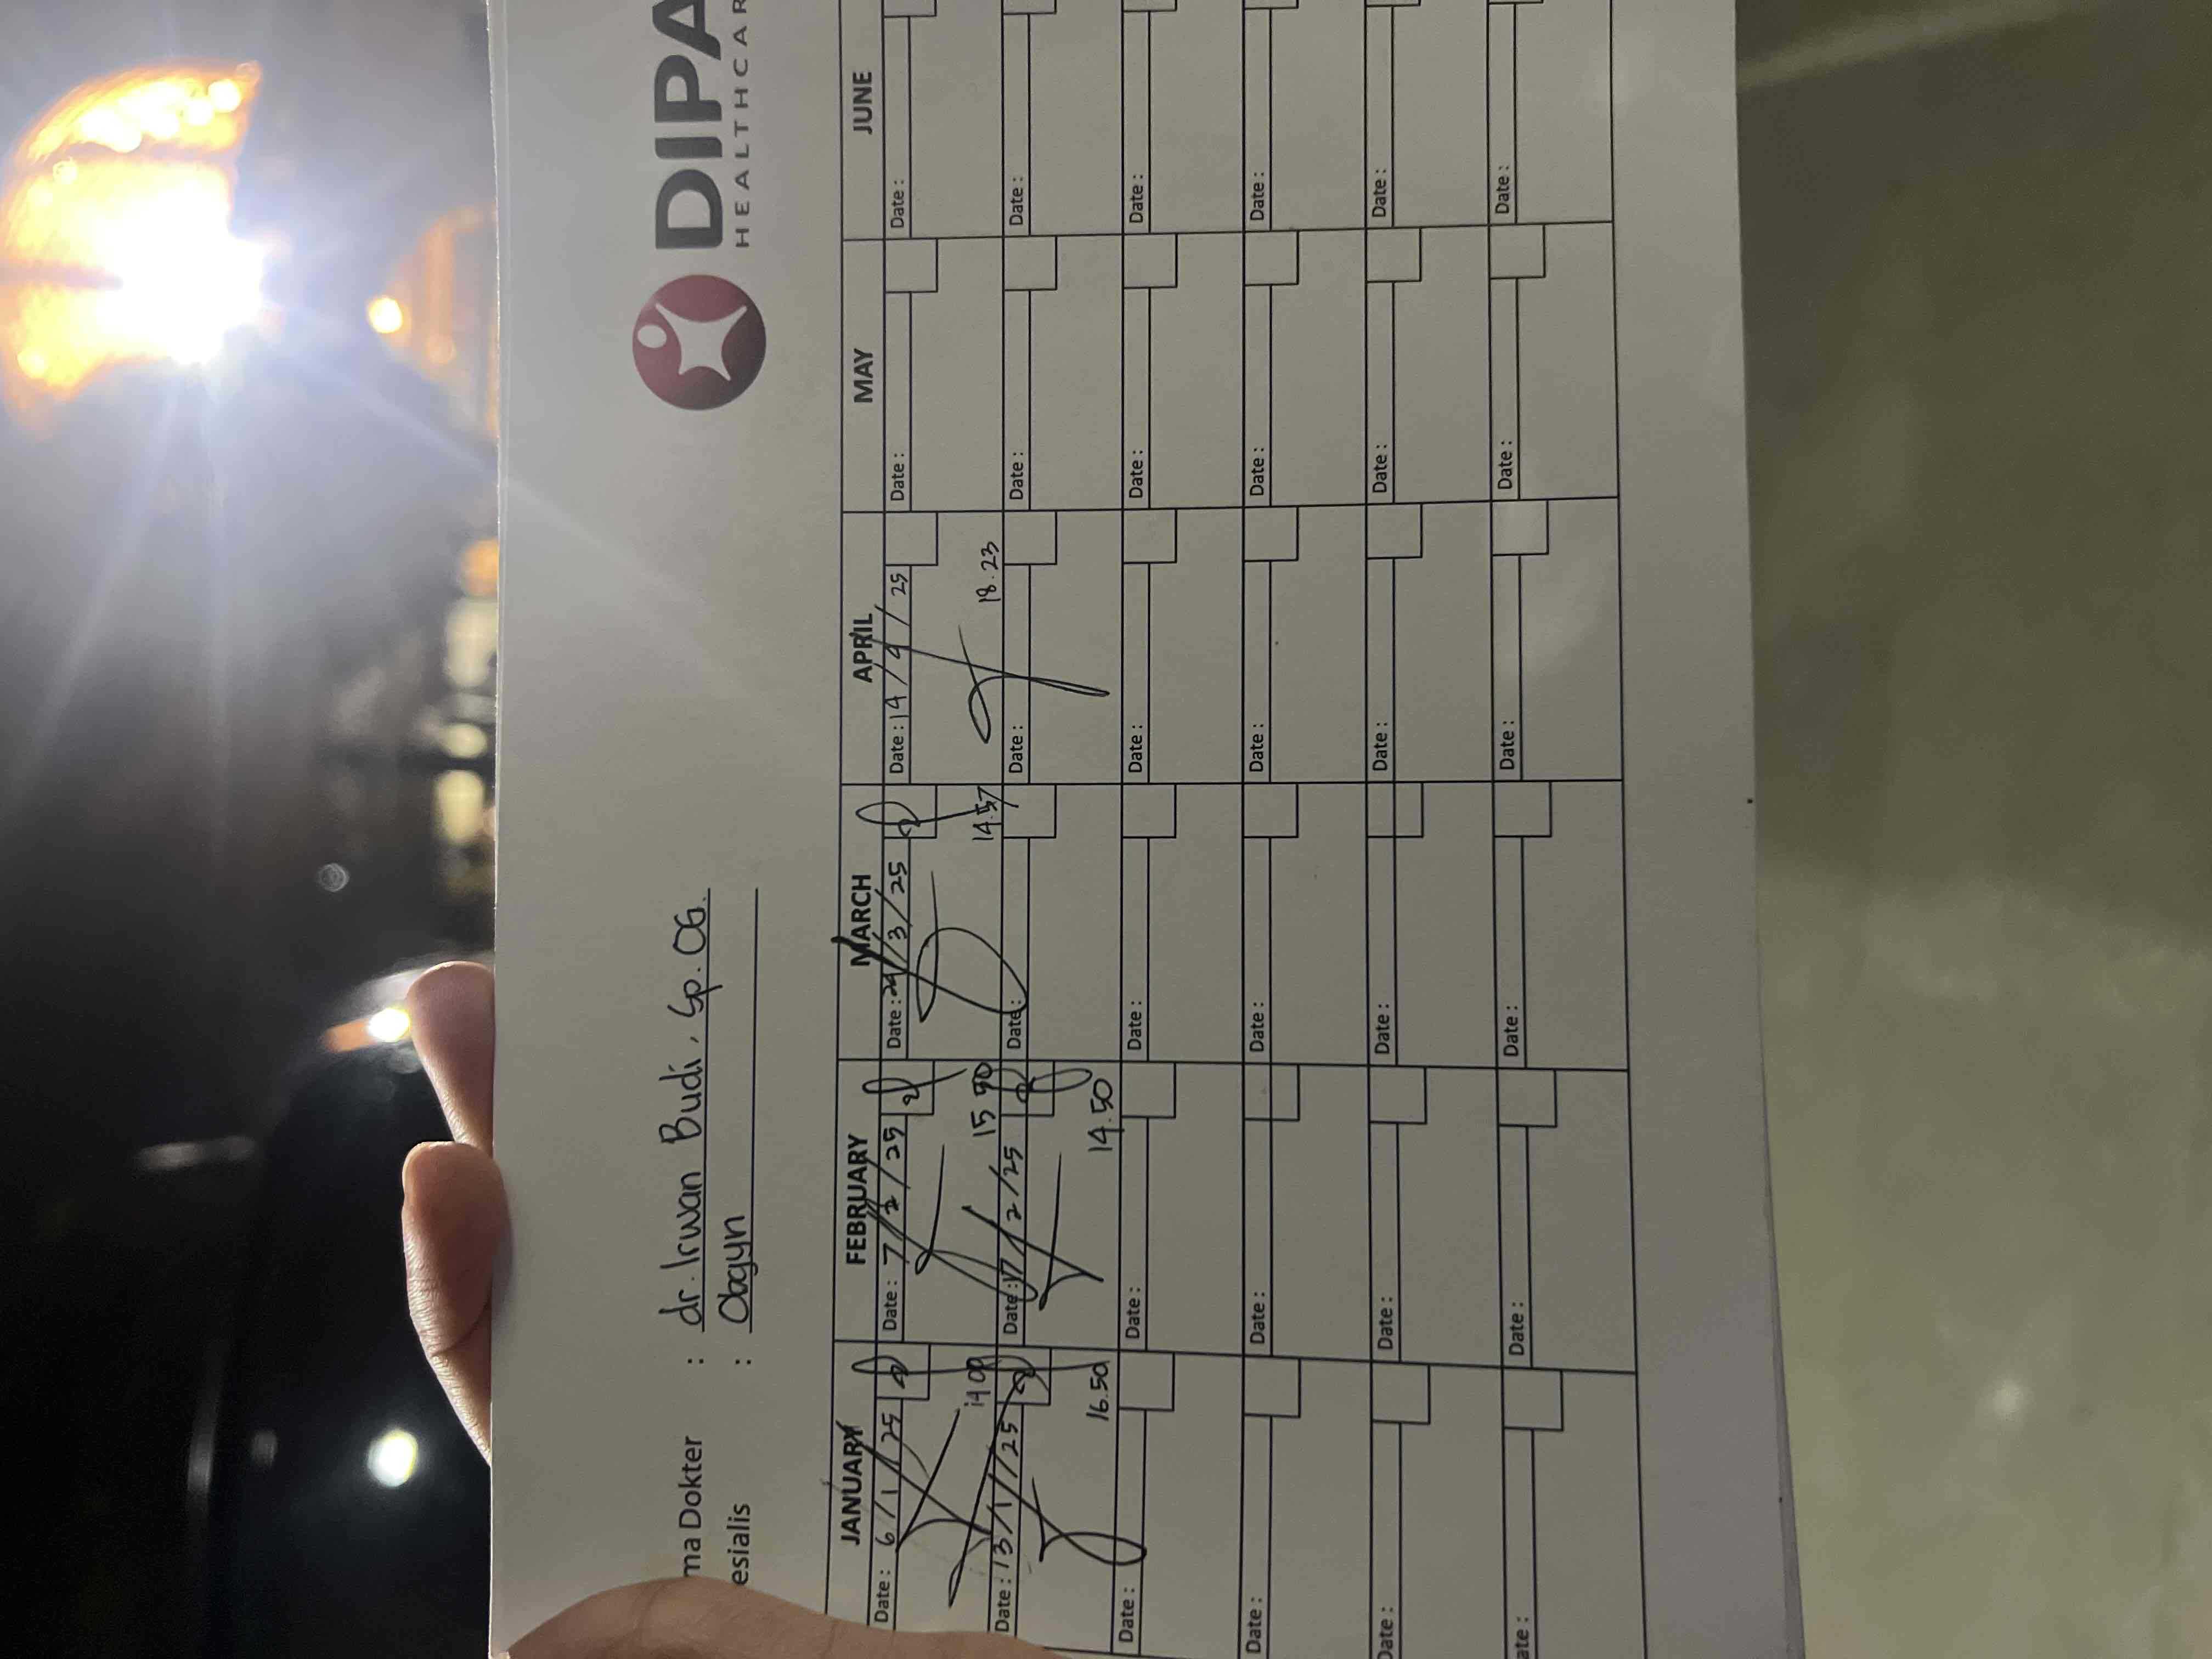 DIPA
HEALTHCAR
ma Dokter : dr. Irwan Budi, Sp.OG.
esialis : Obgyn
JANUARY FEBRUARY MARCH APRIL MAY JUNE
Date: 6/1/25 Date: 7/2/25 Date: 24/3/25 Date: 14/4/25 Date: Date:
14.00 15.40 14.57 18.23
Date: 13/1/25 Date: 17/2/25 Date: Date: Date: Date:
16.50 14.50
Date: Date: Date: Date: Date: Date:
Date: Date: Date: Date: Date: Date:
Date: Date: Date: Date: Date: Date:
ate: Date: Date: Date: Date: Date: